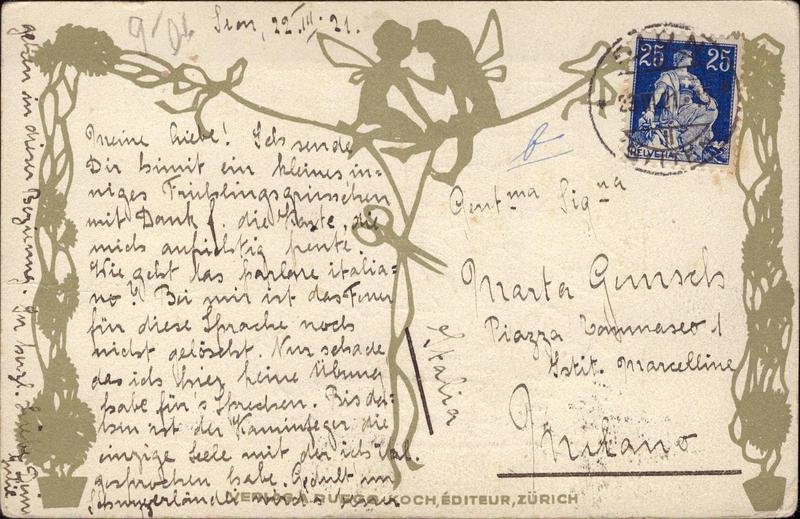 Sion, 22. III. 21.
Meine Liebe! Ich sende
Dir himit ein kleines in-
niges Frühlingsgrüsschen
mit Dank f. die Karte, die
mich aufrichtig freute.
Wie geht das parlare italia-
no? Bei mir ist das Feuer
für diese Sprache noch
nicht gelöscht. Nur schade
das ich hier keine Übung
habe für's Sprechen. Bis da-
hin ist der Kaminfeger die
einzige Seele mit der ich ital.
gesprochen habe. Gedult im
Schwyzerländli
in dieser Beziehung.
Gent.ma Sig.na
Marta Gensch
Piazza Tommaseo 1
Istit. Marcelline
Milano
Italia
25 25
HELVETIA
VERLAG A. RUEGG-KOCH, ÉDITEUR, ZÜRICH